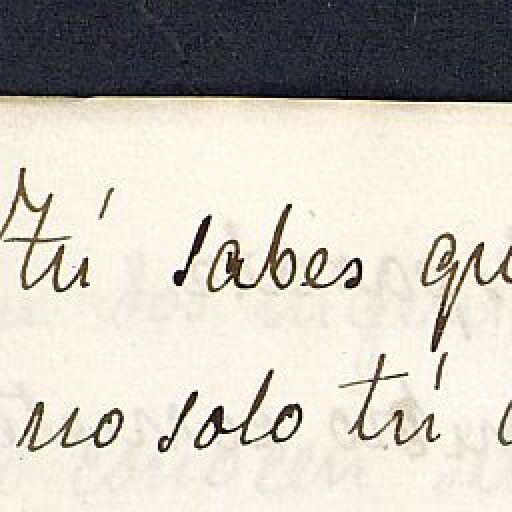 Tú sabes qu
no solo tú